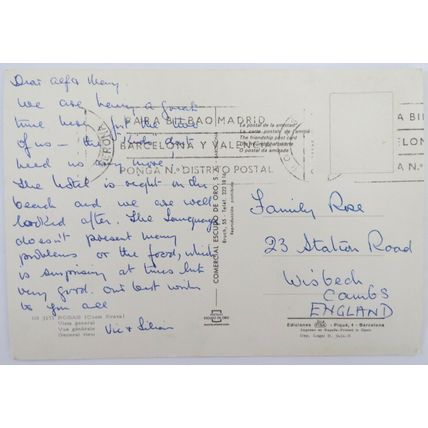 Dear Alf & Mary
We are having a great
time here, just the two
of us — the "kids" don't
need us any more!
The hotel is right on the
beach and we are well
looked after. The Language
doesn't present many
problems or the food, which
is surprising at times but
very good. Our best wishes
to you all
Vic + Lilian
ROSAS (Costa Brava)
Vista general
Vue générale
General view
GERONA
PARA BILBAO MADRID
BARCELONA Y VALENCIA
PONGA N.º DISTRITO POSTAL
La postal de la amistad
La carte postale de l'amitié
The friendship post card
O postal da amizade
COMERCIAL ESCUDO DE ORO, S.A.
Reproducción prohibida
Family Rose
23 Station Road
Wisbech
Cambs
ENGLAND
Ediciones
- Piqué, 4 - Barcelona
Impreso en España-Printed in Spain